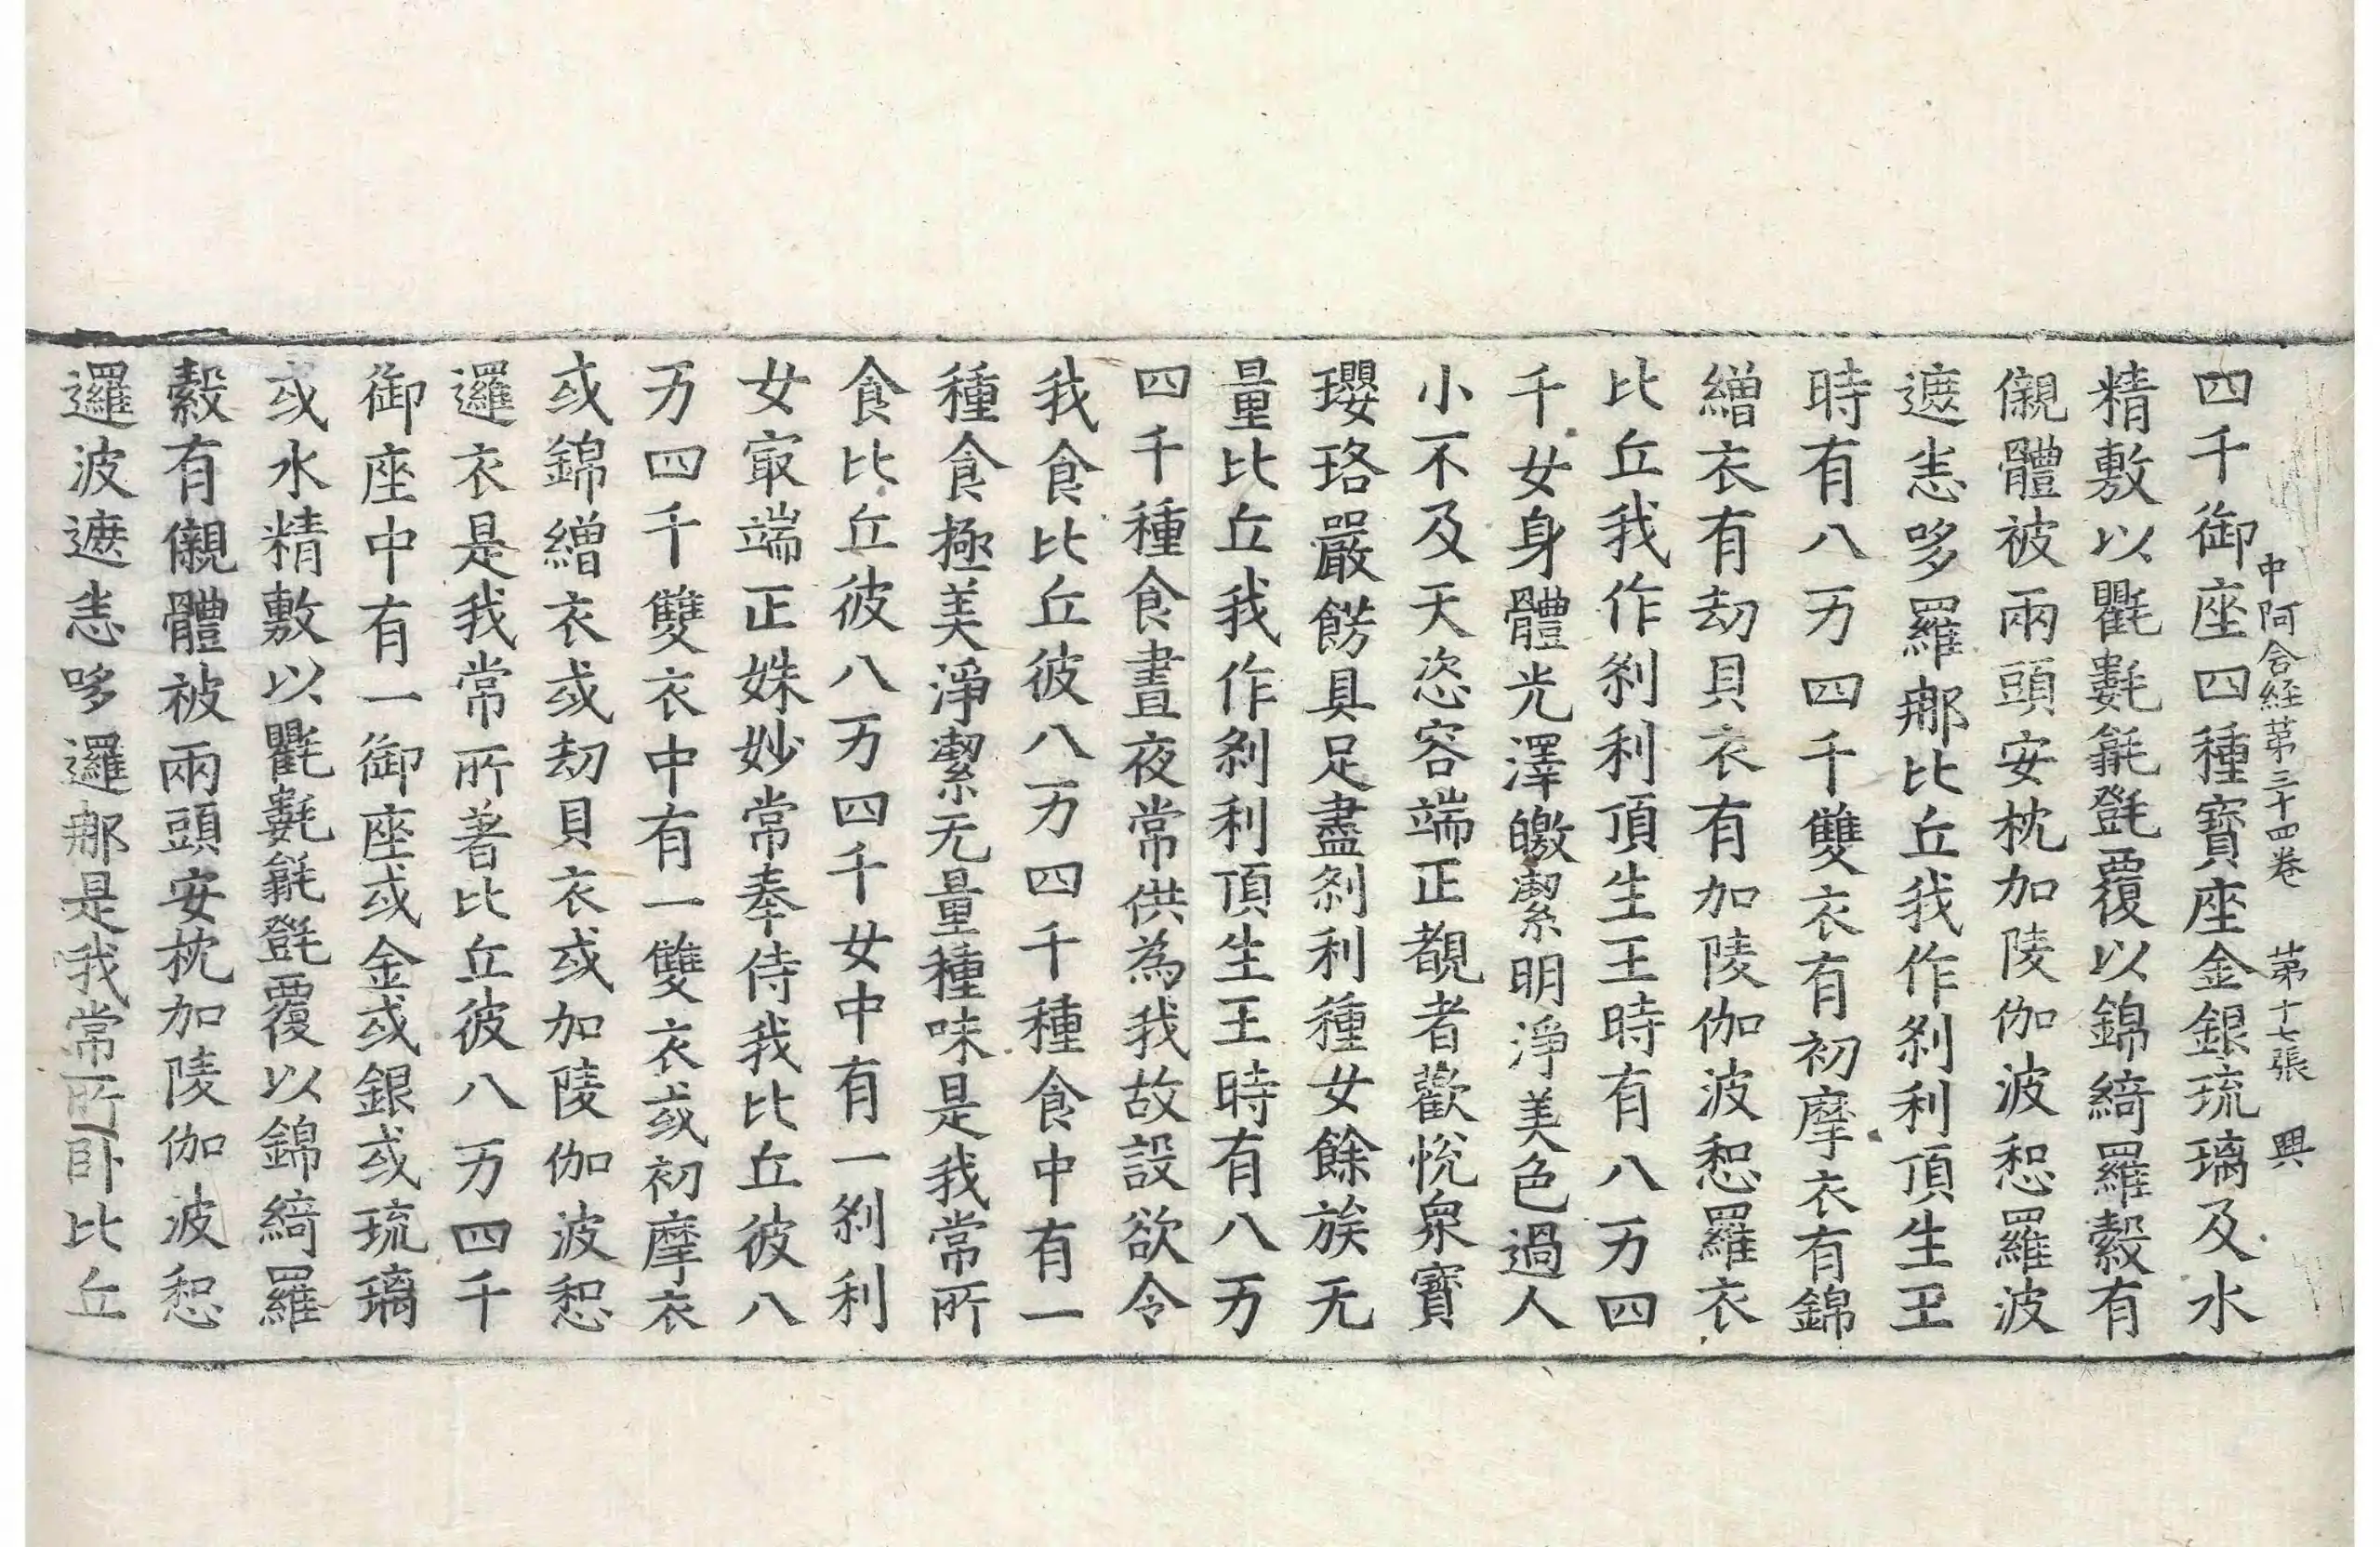 中阿含経苐三十四卷　苐十七張　興
四千御座四種寶座金銀琉璃及水
精敷以氍𣰽毾㲪覆以錦綺羅縠有
儭體被兩頭安枕加陵伽波惒羅波
遮悉哆羅那比丘我作刹利頂生王
時有八万四千雙衣有初摩衣有錦
繒衣有劫貝衣有加陵伽波惒羅衣
比丘我作刹利頂生王時有八万四
千女身體光澤皦潔明淨美色過人
小不及天恣容端正覩者歡悅衆寶
瓔珞嚴餝具足盡刹利種女餘族无
量比丘我作刹利頂生王時有八万
四千種食晝夜常供為我故設欲令
我食比丘彼八万四千種食中有一
種食極美淨潔无量種味是我常所
食比丘彼八万四千女中有一刹利
女冣端正姝妙常奉侍我比丘彼八
万四千雙衣中有一雙衣或初摩衣
或錦繒衣或劫貝衣或加陵伽波惒
邏衣是我常所著比丘彼八万四千
御座中有一御座或金或銀或琉璃
或水精敷以氍𣰽毾㲪覆以錦綺羅
縠有儭體被兩頭安枕加陵伽波惒
邏波遮悉哆邏那是我常所卧比丘